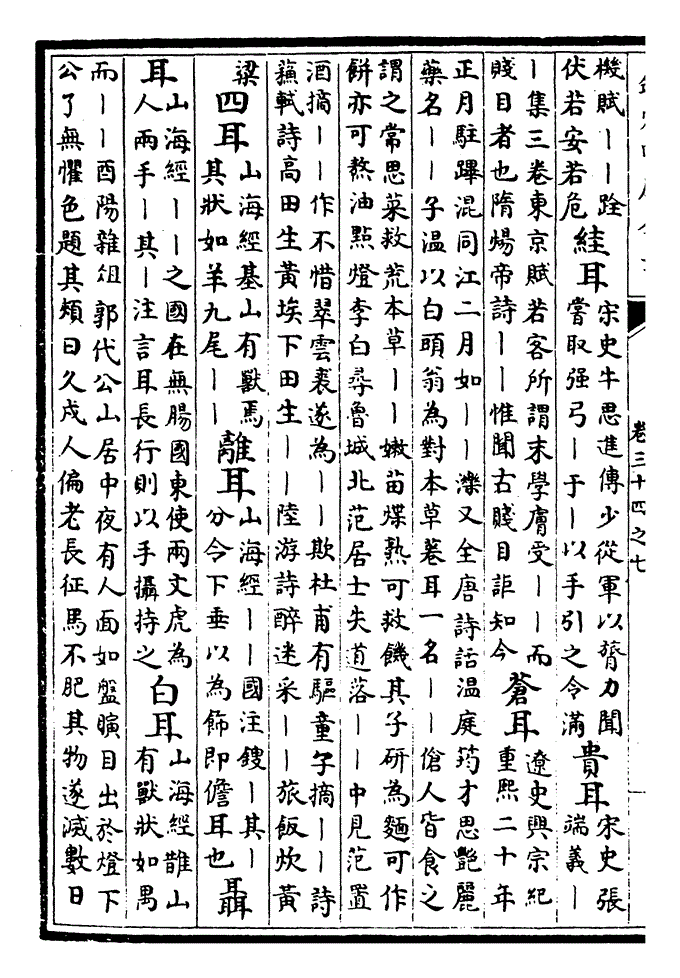 卷三十四之七
機賦丨丨詮
伏若安若危
絓耳
宋史牛思進傳少從軍以膂力聞
嘗取强弓丨于丨以手引之令滿
貴耳
宋史張
端義丨
丨集三卷東京賦若客所謂末學膚受丨丨而
賤目者也隋煬帝詩丨丨惟聞古賤目詎知今
蒼耳
遼史興宗紀
重熙二十年
正月駐蹕混同江二月如丨丨濼又全唐詩話温庭筠才思艷麗
藥名丨丨子温以白頭翁為對本草葈耳一名丨丨傖人皆食之
謂之常思菜救荒本草丨丨嫩苗煠熟可救饑其子研為麵可作
餅亦可熬油點燈李白尋魯城北范居士失道落丨丨中見范置
酒摘丨丨作不惜翠雲裘遂為丨丨欺杜甫有驅童子摘丨丨詩
蘓軾詩高田生黃埃下田生丨丨陸游詩醉迷采丨丨旅飯炊黃
粱
四耳
山海經基山有獸焉
其狀如羊九尾丨丨
離耳
山海經丨丨國注鎪丨其丨
分令下垂以為飾即儋耳也
聶
耳
山海經丨丨之國在無腸國東使兩文虎為
人兩手丨其丨注言耳長行則以手攝持之
白耳
山海經䧿山
有獸狀如禺
而丨丨酉陽雜俎郭代公山居中夜有人面如盤瞚目出於燈下
公了無懼色題其頰曰久戍人偏老長征馬不肥其物遂滅數日